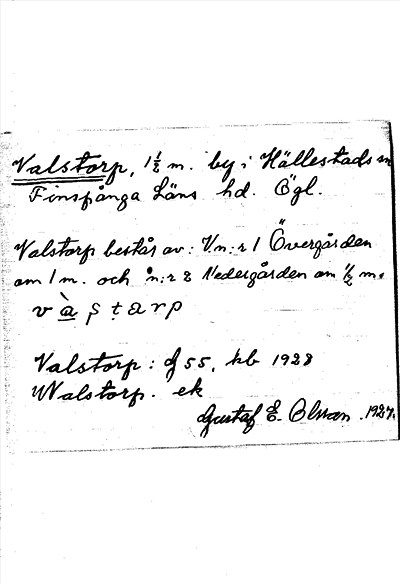 Valstorp, 1½ m. by i Hällestads sn
Finspånga Läns hd. Ögl.
Valstorp består av: Vn:r 1 Övergården
om 1 m. och n:r 2 Nedergården om ½ m.
Valstorp: J 55, kb 1928
Walstorp. ek
Gustaf E. Olsson. 1927.